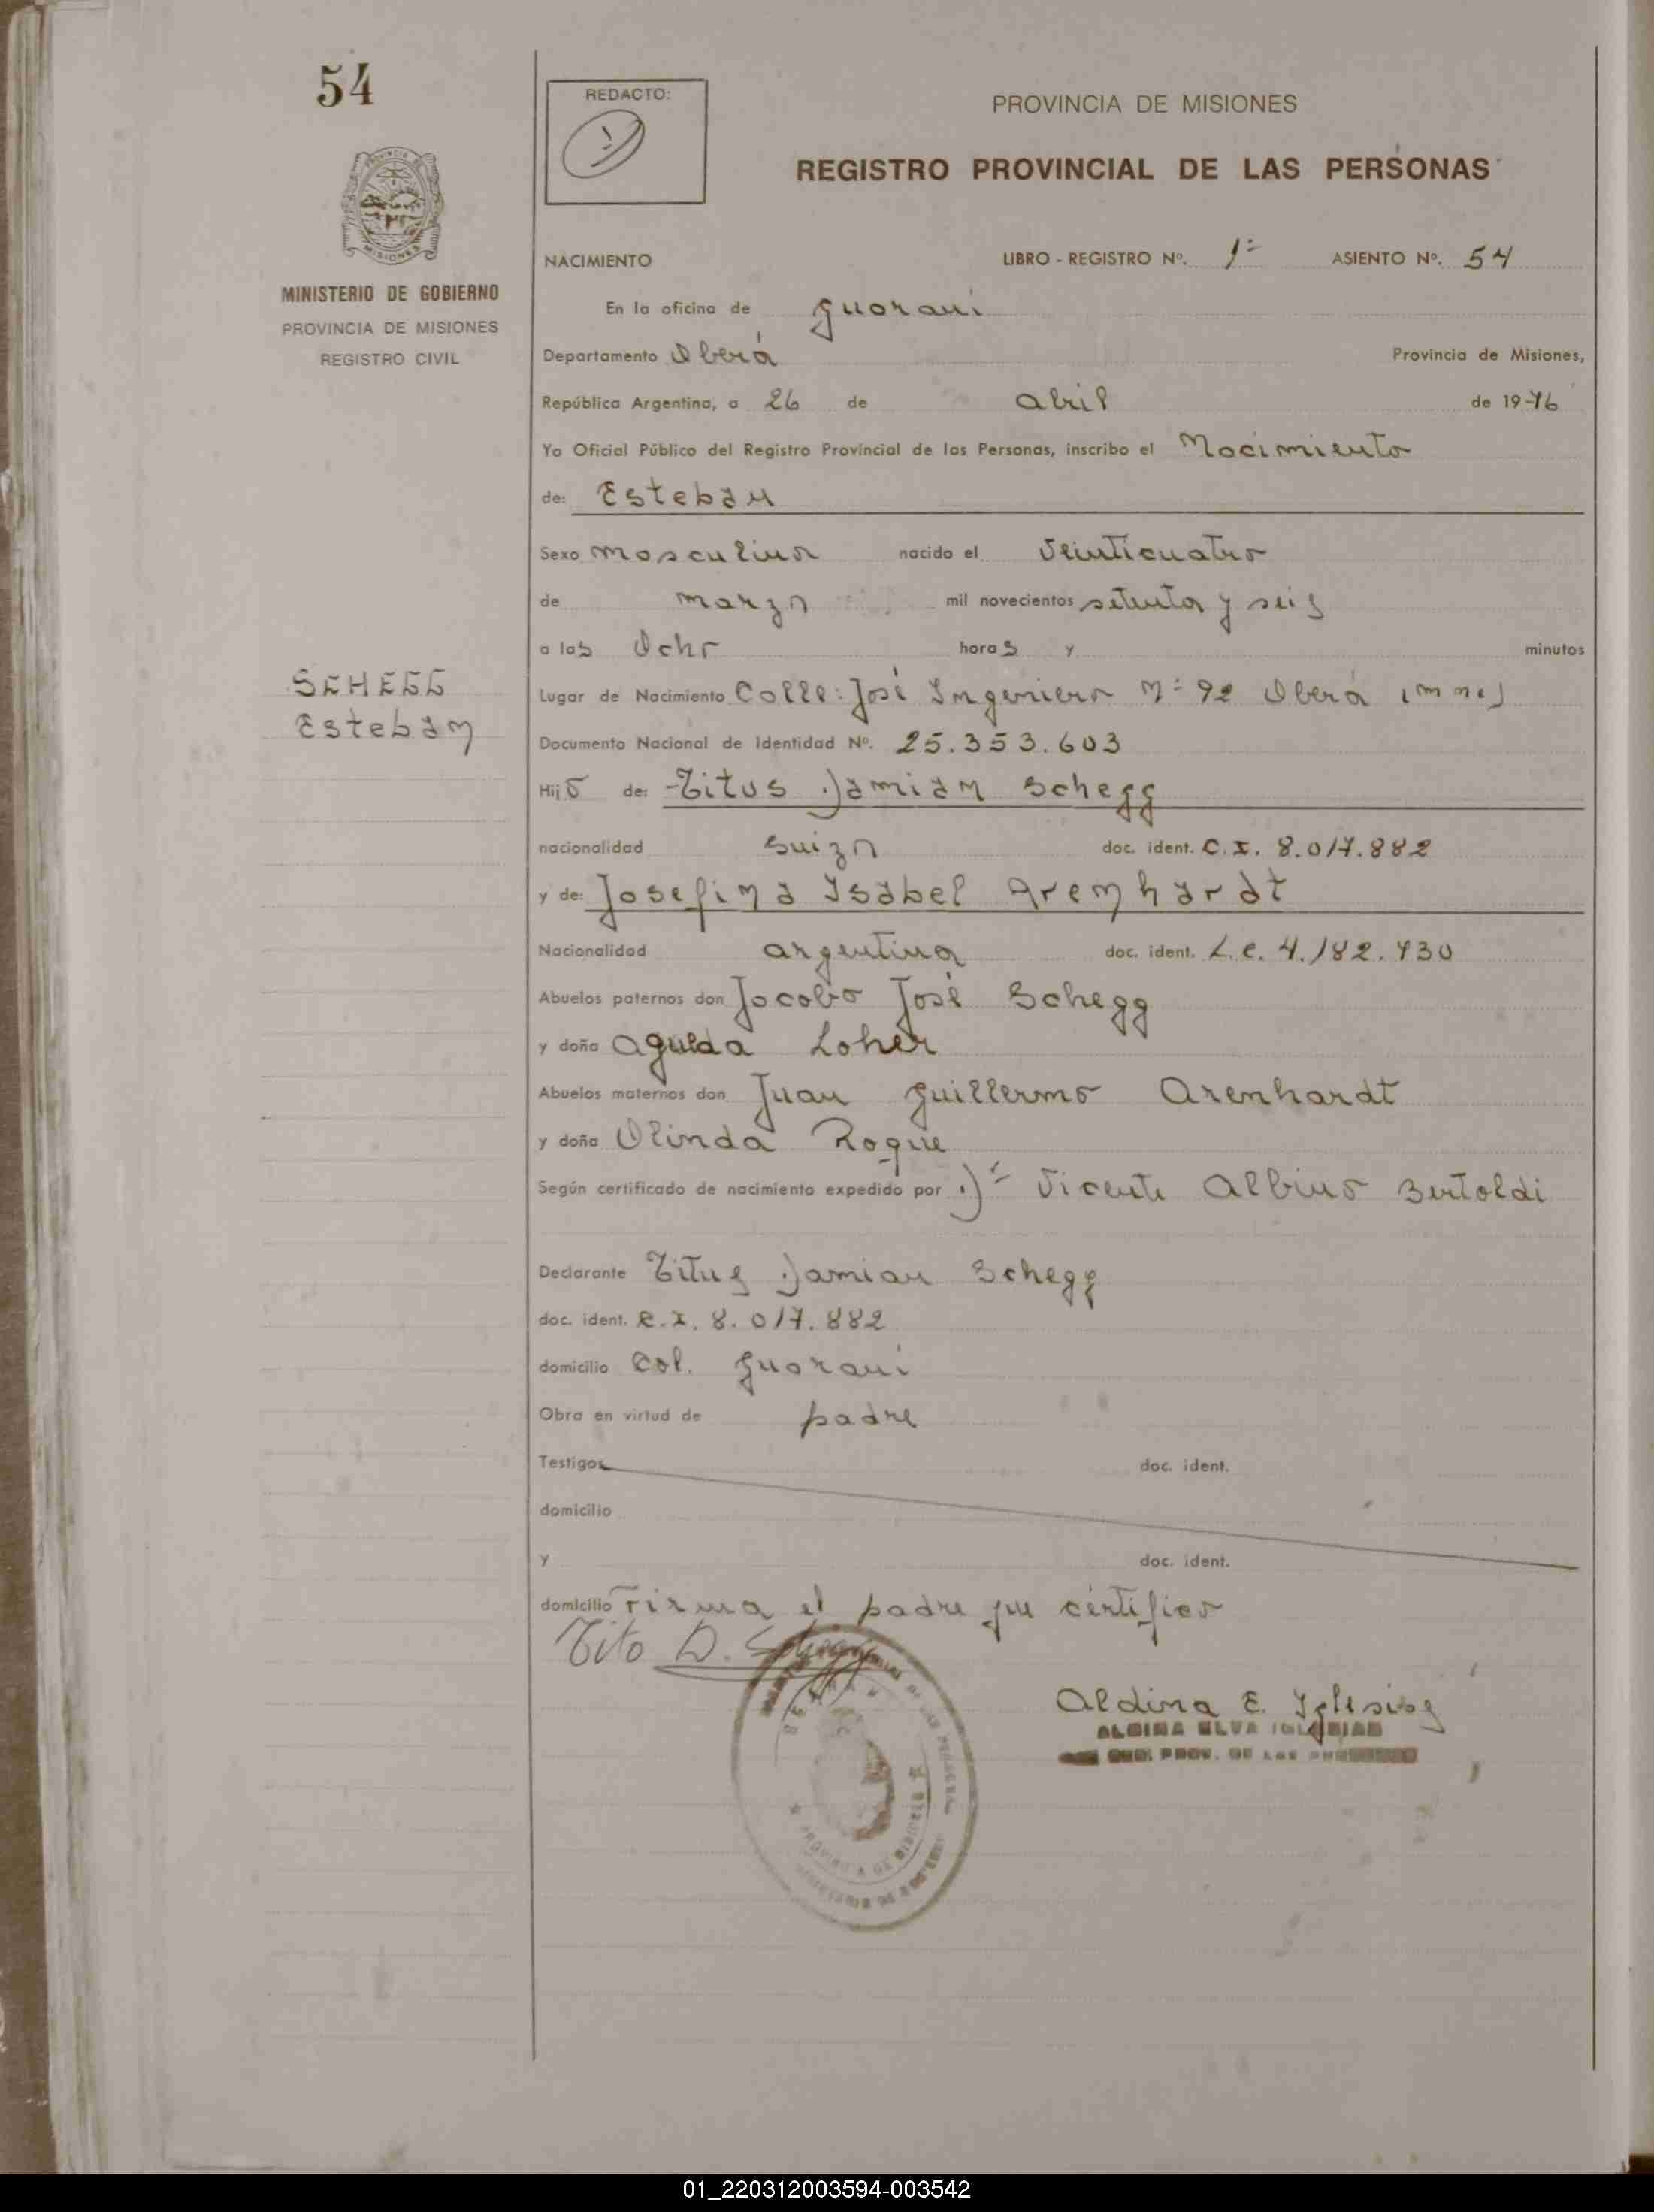 54
REDACTO:
PROVINCIA DE MISIONES
REGISTRO PROVINCIAL DE LAS PERSONAS
MISIONES
MINISTERIO DE GOBIERNO
PROVINCIA DE MISIONES
REGISTRO CIVIL
NACIMIENTO LIBRO - REGISTRO Nº. 1º ASIENTO Nº. 54
En la oficina de Guarani
Departamento Oberá Provincia de Misiones,
República Argentina, a 26 de abril de 1976
Yo Oficial Público del Registro Provincial de las Personas, inscribo el Nacimiento
de: Esteban
Sexo masculino nacido el veinticuatro
de marzo mil novecientos setenta y seis
a las Ocho horas y minutos
SCHEGG
Esteban
Lugar de Nacimiento Calle: José Ingeniero Nº 92 Oberá (mnes)
Documento Nacional de Identidad Nº. 25.353.603
Hijo de: Titus Damian Schegg
nacionalidad suizo doc. ident. C.I. 8.017.882
y de: Josefina Isabel Arenhardt
Nacionalidad argentina doc. ident. L.C. 4.182.730
Abuelos paternos don Jacobo José Schegg
y doña Agueda Loher
Abuelos maternos don Juan Guillermo Arenhardt
y doña Olinda Roque
Según certificado de nacimiento expedido por Dr Vicente Albino Bertoldi
Declarante Titus Damian Schegg
doc. ident. C.I. 8.017.882
domicilio Col. Guarani
Obra en virtud de padre
Testigos doc. ident.
domicilio
y doc. ident.
domicilio Firma el padre que certifico
Tito D. Schegg
Aldina E. Iglesias
ALDINA ELVA IGLESIAS
01_220312003594-003542